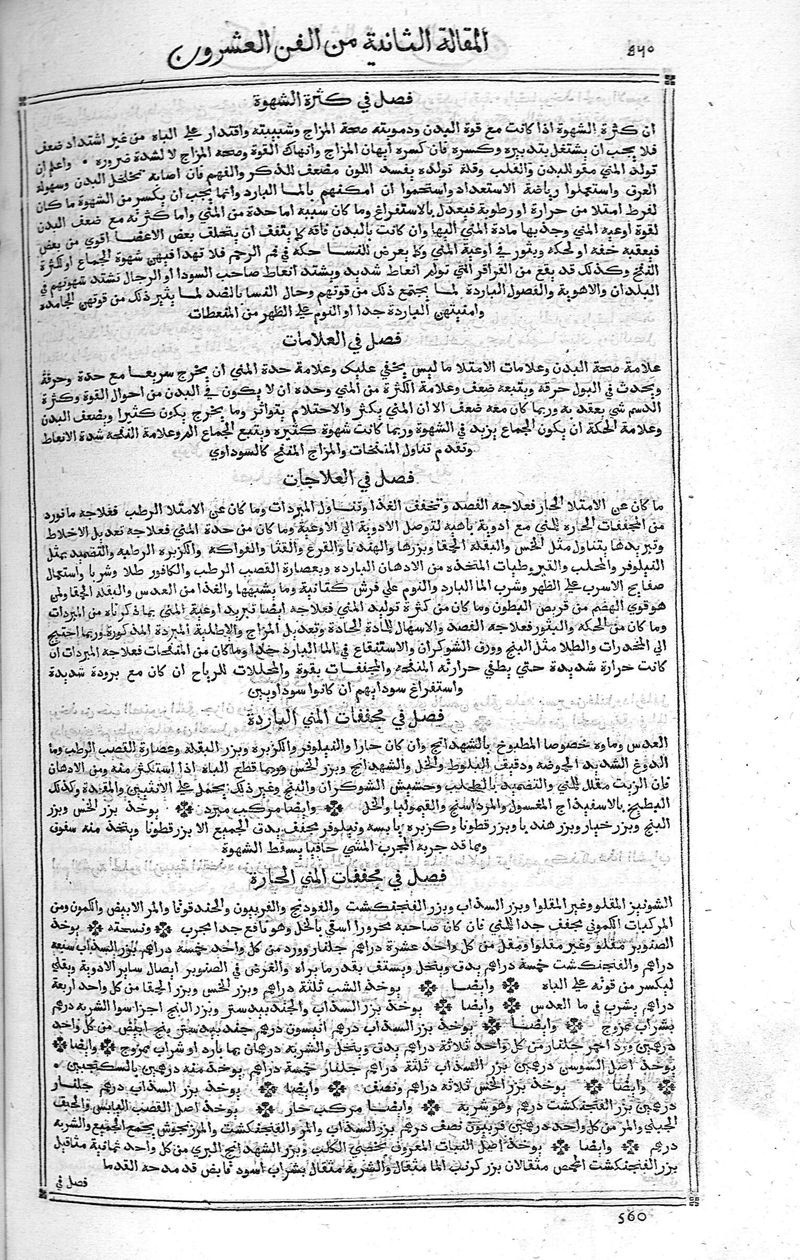 ٥٦٠
المقالة الثانية من الفن العشرون
فصل في كثرة الشهوة
ان كثرة الشهوة اذا كانت مع قوة البدن ودمويته صحة المزاج وشبيبته واقتدار على الباه من غير اشتداد ضعف
فلا يجب ان يشتغل بتدبيره وكسره فان كسره ايهان المزاج وانهاك القوة وصحه المزاج لا لشدة ضروره واعلم ان
العرق واستعملوا رياضة الاستعداد واستحموا ان امكنهم بالما البارد وانما يجب ان يكسر من الشهوة ما كان
لفرط امتلا من حرارة او رطوبة فيعدل بالاستفراغ وما كان سببه اما حدة من المني واما كثرته مع ضعف البدن
لقوة اوعيه المني وجذبها مادة المني اليها وان كانت بالبدن فاقه يتفق ان يتخلف بعض الاعضا اقوي من بعض
البلدان والاهوية والفصول الباردة لما يجتمع ذلك من قوتهم وحال النسا بالضد لما يثير ذلك من قوتهن الجامدة
وامنيتهن الباردة جدا او النوم على الظهر من المنعظات
فصل في العلامات
علامة صحة البدن وعلامات الامتلا ما ليس يخفي عليك وعلامة حدة المني ان يخرج سريعا مع حدة وحرقة
ويحدث في البول حرقة ويتبعه ضعف وعلامة الكثرة من المني وحده ان لا يكون في البدن من احوال القوة وكثرة
الدسم شي يعتد به وربما كان معه ضعف الا ان المني يكثر والاحتلام يتواتر وما يخرج يكون كثيرا ويضعف البدن
وعلامة الحكة ان يكون الجماع يزيد في الشهوة وربما كانت شهوة كثيره ويتبع الجماع الم وعلامة النفخة شدة الانعاظ
وتقدم تناول المنفخات والمزاج المنفخ كالسوداوي
فصل في العلاجات
ما كان عن الامتلا الحار فعلاجه الفصد وتخفف الغذا وتناول المبردات وما كان عن الامتلا الرطب فعلاجه ما نورد
من المجففات الحاره للمني مع ادوية باهيه لتوصل الادوية الي الاوعية وما كان من حدة المني فعلاجه تعديل الاخلاط
وتبريدها بتناول مثل الخس والبقلة الحمقا وبزرها والهندبا والقرع والقثا والفواكه والكزبره الرطبه والتضميد بمثل
النيلوفر والمحلب والقيروطيات المتخذه من الادهان البارده وبعصارة القصب الرطب والكافور طلا وشربا واستعمال
صفايح الاسرب على الظهر وشرب الما البارد والنوم علي فرش كتانية وما يشبهها والغذا من العدس والبقلة الحمقا ولمن
هو قوي الهضم من قريض البطون وما كان من كثرة توليد المني فعلاجه ايضا تبريد اوعية المني بما ذكرناه من المبردات
وما كان من الحكه والبثور فعلاجه الفصد والاسهال للمادة الحادة وتعديل المزاج والاطلية المبردة المذكورة وربما احتيج
الي المخدرات والطلا مثل البنج وورق الشوكران والاستنقاع في الما البارد جدا وما كان من المنفخات فعلاجه المبردات ان
كانت حرارة شديدة حتي يطفي حرارته المنفخه والمجففات بقوة والمحللات للرياح ان كان مع برودة شديدة
واستفراغ سوداهم ان كانوا سوداويين
فصل في مجففات المني الباردة
العدس وماوه خصوصا المطبوخ بالشهدانج وان كان حارا والنيلوفر والكزبره وبزر البقله وعصارة القصب الرطب وما
الدوغ الشديد الحموضه ودقيق البلوط والخل والشهدانج وبزر الخس وربما قطع الباه اذا استكثر منه ومن الادهان
فان الزيت مقلل للمني والتضميد بالطحلب وحشيش الشوكران والبنج وغير ذلك يحمل على الانثيين والمقعدة وكذلك
المطبخ بالاسفيداج المغسول والمرداسنج والقيموليا والخل وايضا مركب مبرد يوخذ بزر الخس وبزر
البنج وبزر خيار وبزر هندبا وبزر قطونا وكزبره يابسه ونيلوفر مجفف يدق الجميع الا بزر قطونا ويتخذ منه سفوف
وما قد جربه المجرب المشي حافيا يسقط الشهوة
فصل في مجففات المني الحارة
الشونيز المقلو وغير المقلوا وبزر السداب وبزر الفنجنكشت والفودنج والفربيون والحندقوقا والمر الابيض والكمون ومن
المركبات الكموني مجفف جدا للمني فان كان صاحبه محرورا اسقي بالخل وهو نافع جدا مجرب ونسخته يوخذ
الصنوبر مقلو وغير مقلوا ومقل من كل واحد عشرة دراهم جلنار وورد من كل واحد خمسة دراهم بزر السداب سبعه
دراهم والفنجنكشت خمسة دراهم يدق وينخل ويستف بقدر ما يراه والغرض في الصنوبر ايصال ساير الادوية ويقلي
ليكسر من قوته على الباه وايضا يوخذ الشب ثلثة دراهم وبزر الخس وبزر الحمقا من كل واحد اربعة
دراهم يشرب في ما العدس وايضا يوخذ بزر السداب والجندبيدستر وبزر البنج اجزا سوا الشربه درهم
بشراب ممزوج وايضا يوخذ بزر السداب درهم انيسون درهم جندبيدستر بنج ابيض من كل واحد
درهمين ورد احمر جلنار من كل واحد ثلاثة دراهم يدق وينخل والشربه درهمان بما بارد او شراب ممزوج وايضا
يوخذ اصل السوسن درهمين بزر السداب ثلثة دراهم جلنار خمسة دراهم يوخذ منه درهمين بالسكنجبين
وايضا يوخذ بزر الخس ثلاثة دراهم ونصف وايضا يوخذ بزر السداب درهم جلنار
درهمين بزر الفنجنكشت درهم وهو شربة وايضا مركب حار يوخذ اصل القصب اليابس والحبق
الجبلي والمر من كل واحد درهمين فربيون نصف درهم بزر السداب والمر والفنجنكشت والمرزنجوش يجمع الجميع والشربه
درهم وايضا يوخذ اصل النبات المعروف بخصي الكلب وبزر الشهدانج البري من كل واحد ثمانية مثاقيل
بزر الفنجنكشت المحمص مثقالان بزر كرنب الما مثقال والشربه مثقال بشراب اسود قابض قد مدحه القدما
فصل في
560